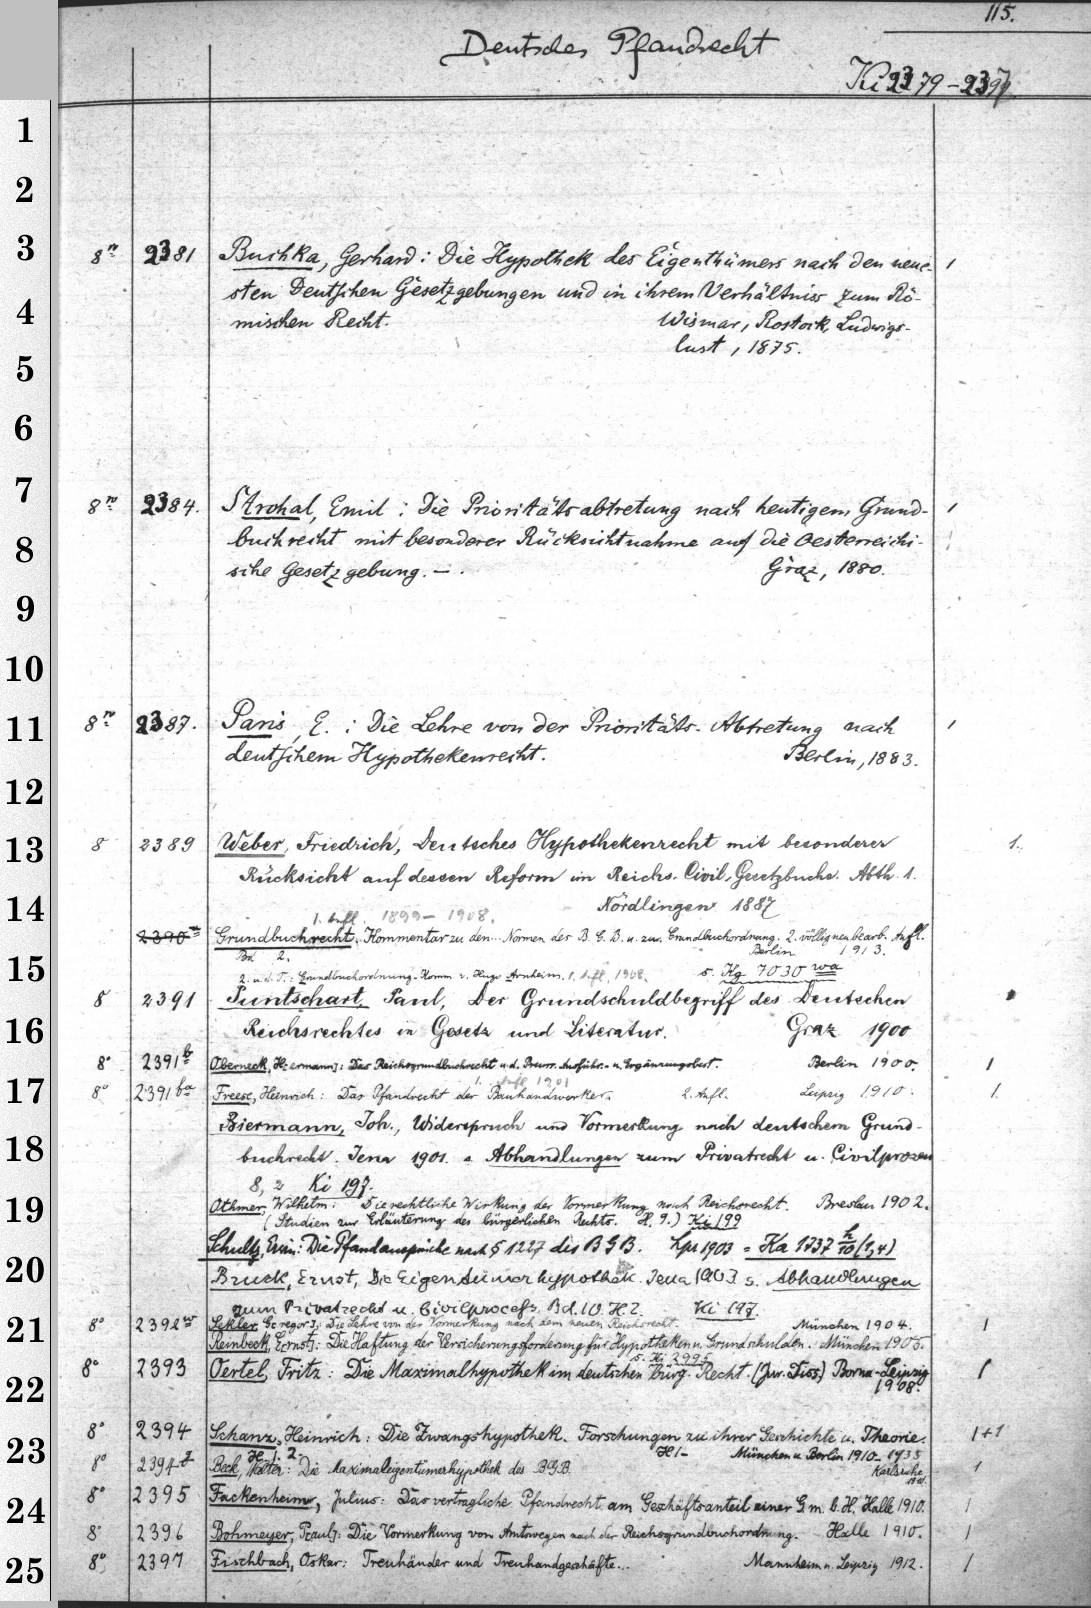 115.
Deutsches Pfandrecht
Ki 2379-2397
1
2
3 8º 2381 Buchka, Gerhard: Die Hypothek des Eigenthümers nach den neue- 1
sten Deutschen Gesetzgebungen und in ihrem Verhältniss zum Rö-
4 mischen Recht. Wismar, Rostock, Ludwigs-
lust, 1875.
5
6
7 8º 2384. Strohal, Emil: Die Prioritätsabtretung nach heutigem Grund- 1
8 buchrecht mit besonderer Rücksichtnahme auf die Oesterreichi-
sche Gesetzgebung. —. Graz, 1880.
9
10
11 8º 2387. Paris, E.: Die Lehre von der Prioritäts-Abtretung nach 1
deutschem Hypothekenrecht. Berlin, 1883.
12
13 8 2389 Weber, Friedrich, Deutsches Hypothekenrecht mit besonderer 1.
Rücksicht auf dessen Reform im Reichs-Civil-Gesetzbuche. Abth. 1.
14 Nördlingen 1887
1. Aufl. 1899-1908.
2390 Grundbuchrecht. Kommentar zu den... Normen des B.G.B. u. zur Grundbuchordnung. 2. völlig neu bearb. Aufl.
Bd 2. Berlin 1913.
15 2. u.d.T.: Grundbuchordnung. Komm v. Hugo Arnheim. 1. Aufl. 1908. s. Kg 7030 wa
8 2391 Puntschart, Paul, Der Grundschuldbegriff des Deutschen
16 Reichsrechtes in Gesetz und Literatur. Graz 1900
8º 2391 b Oberneck, H[ermann]: Das Reichsgrundbuchrecht u.d. Preuss. Ausführ.- u. Ergänzungsbest. Berlin 1900. 1
1. Aufl. 1901
17 8º 2391 ba Freese, Heinrich: Das Pfandrecht der Bauhandwerker. 2. Aufl. Leipzig 1910. 1.
Biermann, Joh., Widerspruch und Vormerkung nach deutschem Grund-
18 buchrecht. Jena 1901. Abhandlungen zum Privatrecht u. Civilprozess
8, 2 Ki 197.
19 Othmer, Wilhelm: Die rechtliche Wirkung der Vormerkung nach Reichsrecht. Breslau 1902.
(Studien zur Erläuterung des bürgerlichen Rechts. H. 9.) Ki 199
Schultz, Erin: Die Pfandansprüche nach § 1227 des BGB. Lpz 1903 = Ka 1737 h/10 (1,4)
20 Bruck, Ernst, Die Eigentümerhypothek. Jena 1903. s. Abhandlungen
zum Privatrecht u. Civilprocess Bd. 10. H. 2. Ki 197.
21 8º 2392 Sekler, Gregor]: Die Lehre von der Vormerkung nach dem neuen Reichsrecht. München 1904. 1
Reinbeck, E[rnst]: Die Haftung der Versicherungsforderung für Hypotheken u. Grundschulden. München 1905.
s. Ki 2995
8º 2393 Oertel, Fritz: Die Maximalhypothek im deutschen bürg. Recht. (Jur. Diss.) Borna-Leipzig 1
22 1908.
8º 2394 Schanz, Heinrich: Die Zwangshypothek. Forschungen zu ihrer Geschichte u. Theorie. 1+1
23 H. 1. 2. H 1- München u. Berlin 1910-1935
8º 2394 Beck, Walter: Die Maximaleigentümerhypothek des BGB. Karlsruhe 1
24 8º 2395 Fackenheim, Julius: Das vertragliche Pfandrecht am Geschäftsanteil einer G.m.b.H. Halle 1910. 1
8º 2396 Bohmeyer, P[aul]: Die Vormerkung von Amtswegen nach der Reichsgrundbuchordnung. Halle 1910. 1
25 8º 2397 Fischbach, Oskar: Treuhänder und Treuhandgeschäfte... Mannheim u. Leipzig 1912. 1